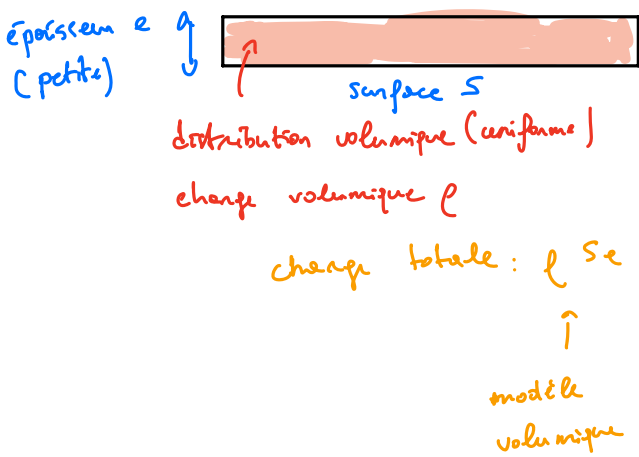 épaisseur e
(petite)
surface S
distribution volumique (uniforme)
charge volumique ρ
charge totale : ρ S e
modèle
volumique